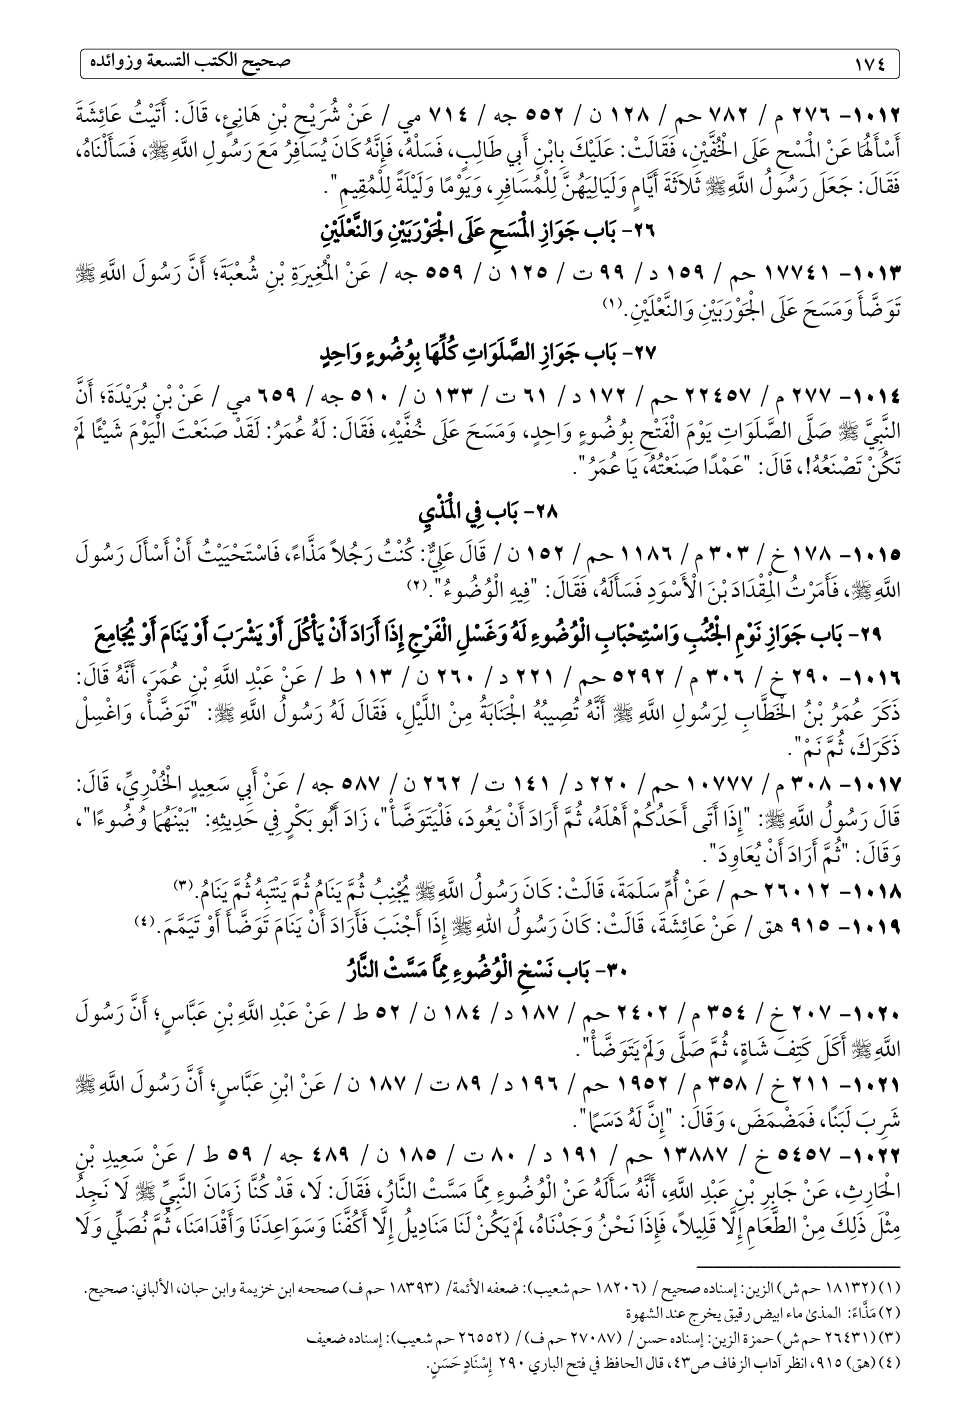 ١٧٤ صحيح الكتب التسعة وزوائده
١٠١٢- ٢٧٦ م / ٧٨٢ حم / ١٢٨ ن / ٥٥٢ جه / ٧١٤ مي / عَنْ شُرَيْحِ بْنِ هَانِئٍ، قَالَ: أَتَيْتُ عَائِشَةَ
أَسْأَلُهَا عَنْ الْمَسْحِ عَلَى الْخُفَّيْنِ، فَقَالَتْ: عَلَيْكَ بِابْنِ أَبِي طَالِبٍ، فَسَلْهُ، فَإِنَّهُ كَانَ يُسَافِرُ مَعَ رَسُولِ اللَّهِ ﷺ، فَسَأَلْنَاهُ،
فَقَالَ: جَعَلَ رَسُولُ اللَّهِ ﷺ ثَلَاثَةَ أَيَّامٍ وَلَيَالِيَهُنَّ لِلْمُسَافِرِ، وَيَوْمًا وَلَيْلَةً لِلْمُقِيمِ".
٢٦- بَاب جَوَازِ الْمَسَحِ عَلَى الْجَوْرَبَيْنِ وَالنَّعْلَيْنِ
١٠١٣- ١٧٧٤١ حم / ١٥٩ د/ ٩٩ ت / ١٢٥ ن / ٥٥٩ جه / عَنْ الْمُغِيرَةِ بْنِ شُعْبَةَ؛ أَنَّ رَسُولَ اللَّهِ ﷺ
تَوَضَّأَ وَمَسَحَ عَلَى الْجَوْرَبَيْنِ وَالنَّعْلَيْنِ.(١)
٢٧- بَاب جَوَازِ الصَّلَوَاتِ كُلِّهَا بِوُضُوءٍ وَاحِدٍ
١٠١٤- ٢٧٧ م / ٢٢٤٥٧ حم / ١٧٢ د / ٦١ ت / ١٣٣ ن / ٥١٠ جه / ٦٥٩ مي / عَنْ بْنِ بُرَيْدَةَ؛ أَنَّ
النَّبِيَّ ﷺ صَلَّى الصَّلَوَاتِ يَوْمَ الْفَتْحِ بِوُضُوءٍ وَاحِدٍ، وَمَسَحَ عَلَى خُفَّيْهِ، فَقَالَ: لَهُ عُمَرُ: لَقَدْ صَنَعْتَ الْيَوْمَ شَيْئًا لَمْ
تَكُنْ تَصْنَعُهُ!، قَالَ: "عَمْدًا صَنَعْتُهُ، يَا عُمَرُ".
٢٨- بَاب فِي الْمَذْيِ
١٠١٥- ١٧٨ خ/ ٣٠٣ م/ ١١٨٦ حم/ ١٥٢ ن/ قَالَ عَلِيٌّ: كُنْتُ رَجُلاً مَذَّاءً، فَاسْتَحْيَيْتُ أَنْ أَسْأَلَ رَسُولَ
اللَّهِ ﷺ، فَأَمَرْتُ الْمِقْدَادَ بْنَ الْأَسْوَدِ فَسَأَلَهُ، فَقَالَ: "فِيهِ الْوُضُوءُ".(٢)
٢٩- بَاب جَوَازِ نَوْمِ الْجُنُبِ وَاسْتِحْبَابِ الْوُضُوءِ لَهُ وَغَسْلِ الْفَرْجِ إِذَا أَرَادَ أَنْ يَأْكُلَ أَوْ يَشْرَبَ أَوْ يَنَامَ أَوْ يُجَامِعَ
١٠١٦- ٢٩٠ خ/ ٣٠٦ م/ ٥٢٩٢ حم/ ٢٢١ د/ ٢٦٠ ن/ ١١٣ ط / عَنْ عَبْدِ اللَّهِ بْنِ عُمَرَ، أَنَّهُ قَالَ:
ذَكَرَ عُمَرُ بْنُ الْخَطَّابِ لِرَسُولِ اللَّهِ ﷺ أَنَّهُ تُصِيبُهُ الْجَنَابَةُ مِنْ اللَّيْلِ، فَقَالَ لَهُ رَسُولُ اللَّهِ ﷺ: "تَوَضَّأْ، وَاغْسِلْ
ذَكَرَكَ، ثُمَّ نَمْ".
١٠١٧- ٣٠٨ م/ ١٠٧٧٧ حم/ ٢٢٠ د/ ١٤١ ت/ ٢٦٢ ن/ ٥٨٧ جه / عَنْ أَبِي سَعِيدٍ الْخُدْرِيِّ، قَالَ:
قَالَ رَسُولُ اللَّهِ ﷺ: "إِذَا أَتَى أَحَدُكُمْ أَهْلَهُ، ثُمَّ أَرَادَ أَنْ يَعُودَ، فَلْيَتَوَضَّأْ"، زَادَ أَبُو بَكْرٍ فِي حَدِيثِهِ: "بَيْنَهُمَا وُضُوءًا"،
وَقَالَ: "ثُمَّ أَرَادَ أَنْ يُعَاوِدَ".
١٠١٨- ٢٦٠١٢ حم / عَنْ أُمِّ سَلَمَةَ، قَالَتْ: كَانَ رَسُولُ اللَّهِ ﷺ يُجْنِبُ ثُمَّ يَنَامُ ثُمَّ يَنْتَبِهُ ثُمَّ يَنَامُ.(٣)
١٠١٩- ٩١٥ هق / عَنْ عَائِشَةَ، قَالَتْ: كَانَ رَسُولُ اللهِ ﷺ إِذَا أَجْنَبَ فَأَرَادَ أَنْ يَنَامَ تَوَضَّأَ أَوْ تَيَمَّمَ.(٤)
٣٠- بَاب نَسْخِ الْوُضُوءِ مِمَّا مَسَّتْ النَّارُ
١٠٢٠- ٢٠٧ خ/ ٣٥٤ م/ ٢٤٠٢ حم/ ١٨٧ د/ ١٨٤ ن/ ٥٢ ط / عَنْ عَبْدِ اللَّهِ بْنِ عَبَّاسٍ؛ أَنَّ رَسُولَ
اللَّهِ ﷺ أَكَلَ كَتِفَ شَاةٍ، ثُمَّ صَلَّى وَلَمْ يَتَوَضَّأْ".
١٠٢١- ٢١١ خ/ ٣٥٨ م/ ١٩٥٢ حم/ ١٩٦ د/ ٨٩ ت/ ١٨٧ ن/ عَنْ ابْنِ عَبَّاسٍ؛ أَنَّ رَسُولَ اللَّهِ ﷺ
شَرِبَ لَبَنًا، فَمَضْمَضَ، وَقَالَ: "إِنَّ لَهُ دَسَمًا".
١٠٢٢- ٥٤٥٧ خ / ١٣٨٨٧ حم / ١٩١ د/ ٨٠ ت / ١٨٥ ن / ٤٨٩ جه / ٥٩ ط / عَنْ سَعِيدِ بْنِ
الْحَارِثِ، عَنْ جَابِرِ بْنِ عَبْدِ اللَّهِ، أَنَّهُ سَأَلَهُ عَنْ الْوُضُوءِ مِمَّا مَسَّتْ النَّارُ، فَقَالَ: لَا، قَدْ كُنَّا زَمَانَ النَّبِيِّ ﷺ لَا نَجِدُ
مِثْلَ ذَلِكَ مِنْ الطَّعَامِ إِلَّا قَلِيلاً، فَإِذَا نَحْنُ وَجَدْنَاهُ، لَمْ يَكُنْ لَنَا مَنَادِيلُ إِلَّا أَكُفَّنَا وَسَوَاعِدَنَا وَأَقْدَامَنَا، ثُمَّ نُصَلِّي وَلَا
(١) (١٨١٣٢ حم ش) الزين: إسناده صحيح / (١٨٢٠٦ حم شعيب): ضعفه الأئمة/ (١٨٣٩٣ حم ف) صححه ابن خزيمة وابن حبان، الألباني: صحيح.
(٢) مَذَّاءً: المذىٰ ماء ابيض رقيق يخرج عند الشهوة
(٣) (٢٦٤٣١ حم ش) حمزة الزين: إسناده حسن / (٢٧٠٨٧ حم ف) / (٢٦٥٥٢ حم شعيب): إسناده ضعيف
(٤) (هق) ٩١٥، انظر آداب الزفاف ص٤٣، قال الحافظ في فتح الباري ٢٩٠ إِسْنَادٍ حَسَنٍ.